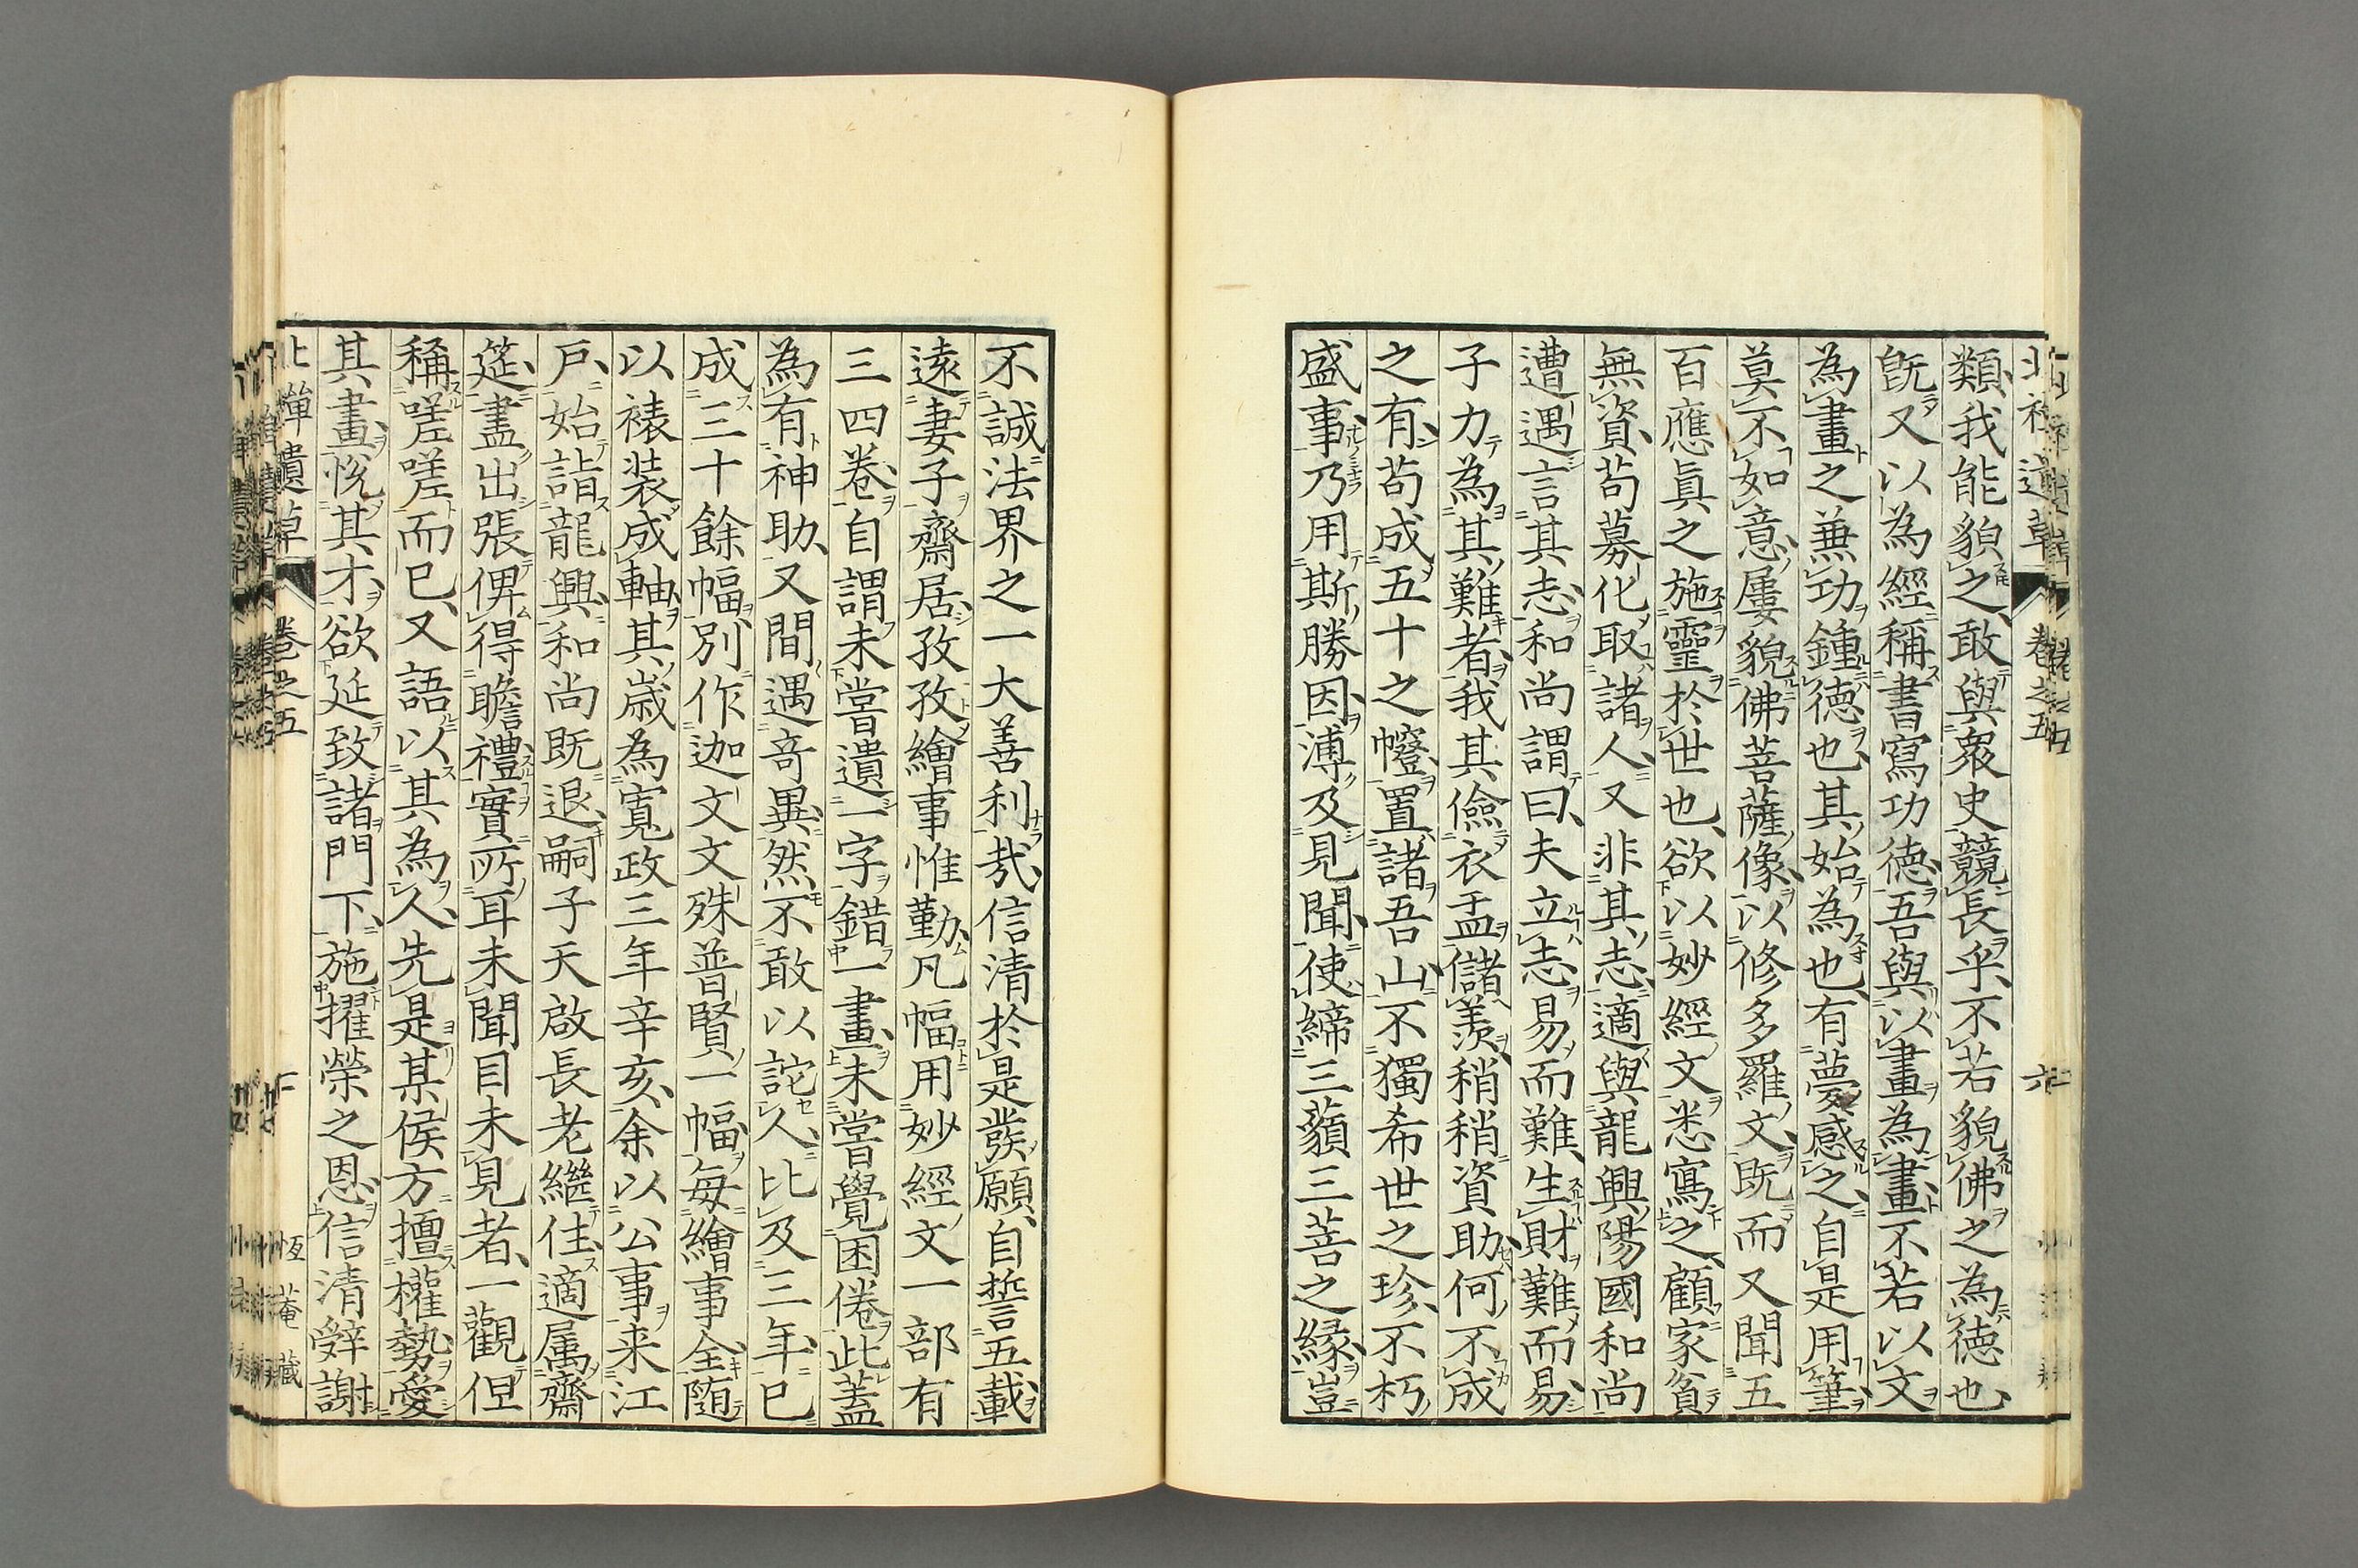 類我能貌之敢與衆史競長乎不若貌佛之為德也
既又以為經稱書寫功德吾與以畫為畫不若以文
為畫之兼功鍾德也其始為也有夢感之自是用筆
莫不如意屢貌佛菩薩像以修多羅文既而又聞五
百應眞之施靈於世也欲以妙經文悉寫之顧家貧
無資苟募化取諸人又非其志適與龍興陽國和尚
遭遇言其志和尚謂曰夫立志易而難生財難而易
子力為其難者我其儉衣盂儲羨稍稍資助何不成
之有苟成五十之幢置諸吾山不獨希世之珍不朽
盛事乃用斯勝因溥及見聞使締三藐三菩之縁豈
不誠法界之一大善利哉信清於是發願自誓五載
遠妻子齋居孜孜繪事惟勤凡幅用妙經文一部有
三四卷自謂未嘗遺一字錯一畫未嘗覺困倦此蓋
為有神助又間遇奇異然不敢以詑人比及三年已
成三十餘幅別作迦文文殊普賢一幅每繪事全随
以裱装成軸其歳為寬政三年辛亥余以公事来江
戸始詣龍興和尚既退嗣子天啟長老繼住適属齋
筵盡出張俾得瞻禮實所耳未聞目未見者一觀但
稱嗟嗟而已又語以其為人先是某侯方擅權勢愛
其畫悅其才欲延致諸門下施擢榮之恩信清辤謝
北禪遺草 卷之五 恆菴藏